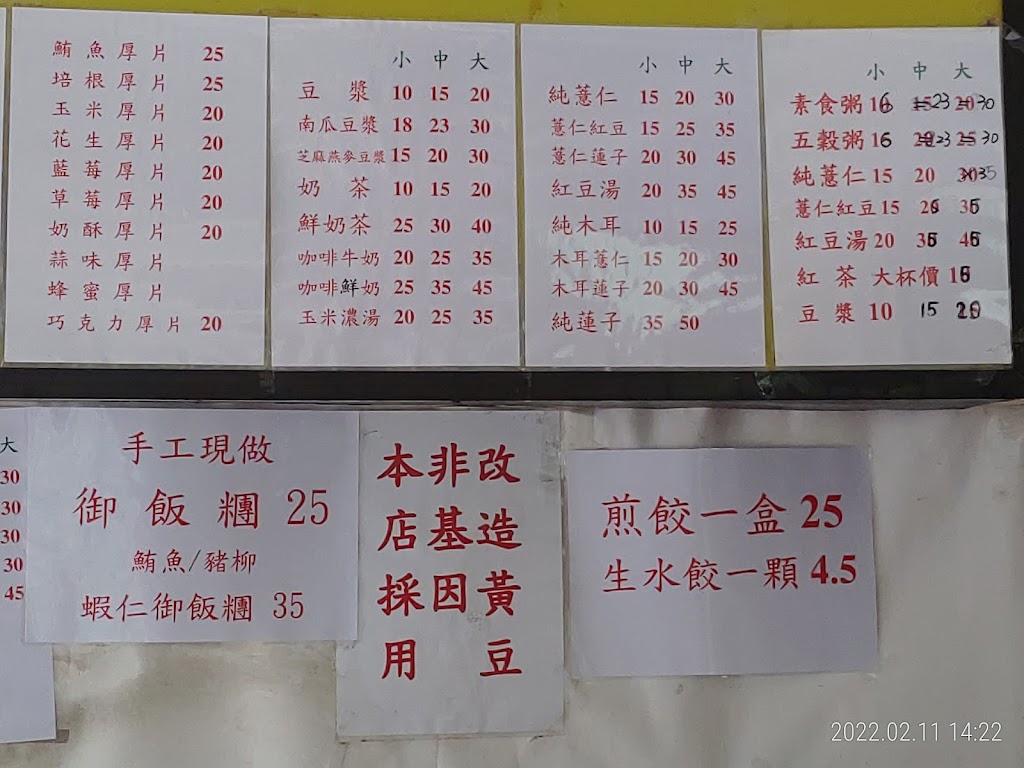 鮪魚厚片 25
培根厚片 25
玉米厚片 20
花生厚片 20
藍莓厚片 20
草莓厚片 20
奶酥厚片 20
蒜味厚片
蜂蜜厚片
巧克力厚片 20
小 中 大
豆漿 10 15 20
南瓜豆漿 18 23 30
芝麻燕麥豆漿 15 20 30
奶茶 10 15 20
鮮奶茶 25 30 40
咖啡牛奶 20 25 35
咖啡鮮奶 25 35 45
玉米濃湯 20 25 35
小 中 大
純薏仁 15 20 30
薏仁紅豆 15 25 35
薏仁蓮子 20 30 45
紅豆湯 20 35 45
純木耳 10 15 25
木耳薏仁 15 20 30
木耳蓮子 20 30 45
純蓮子 35 50
小 中 大
素食粥 16 23 30
五穀粥 16 23 30
純薏仁 15 20 35
薏仁紅豆 15 35
紅豆湯 20 35 45
紅茶 大杯價 15
豆漿 10 15 20
大
30
30
30
30
45
手工現做
御飯糰 25
鮪魚/豬柳
蝦仁御飯糰 35
本非改
店基造
採因黃
用 豆
煎餃一盒 25
生水餃一顆 4.5
2022.02.11 14:22